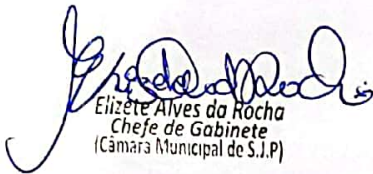 Elizete Alves da Rocha
Chefe de Gabinete
(Câmara Municipal de S.J.P)